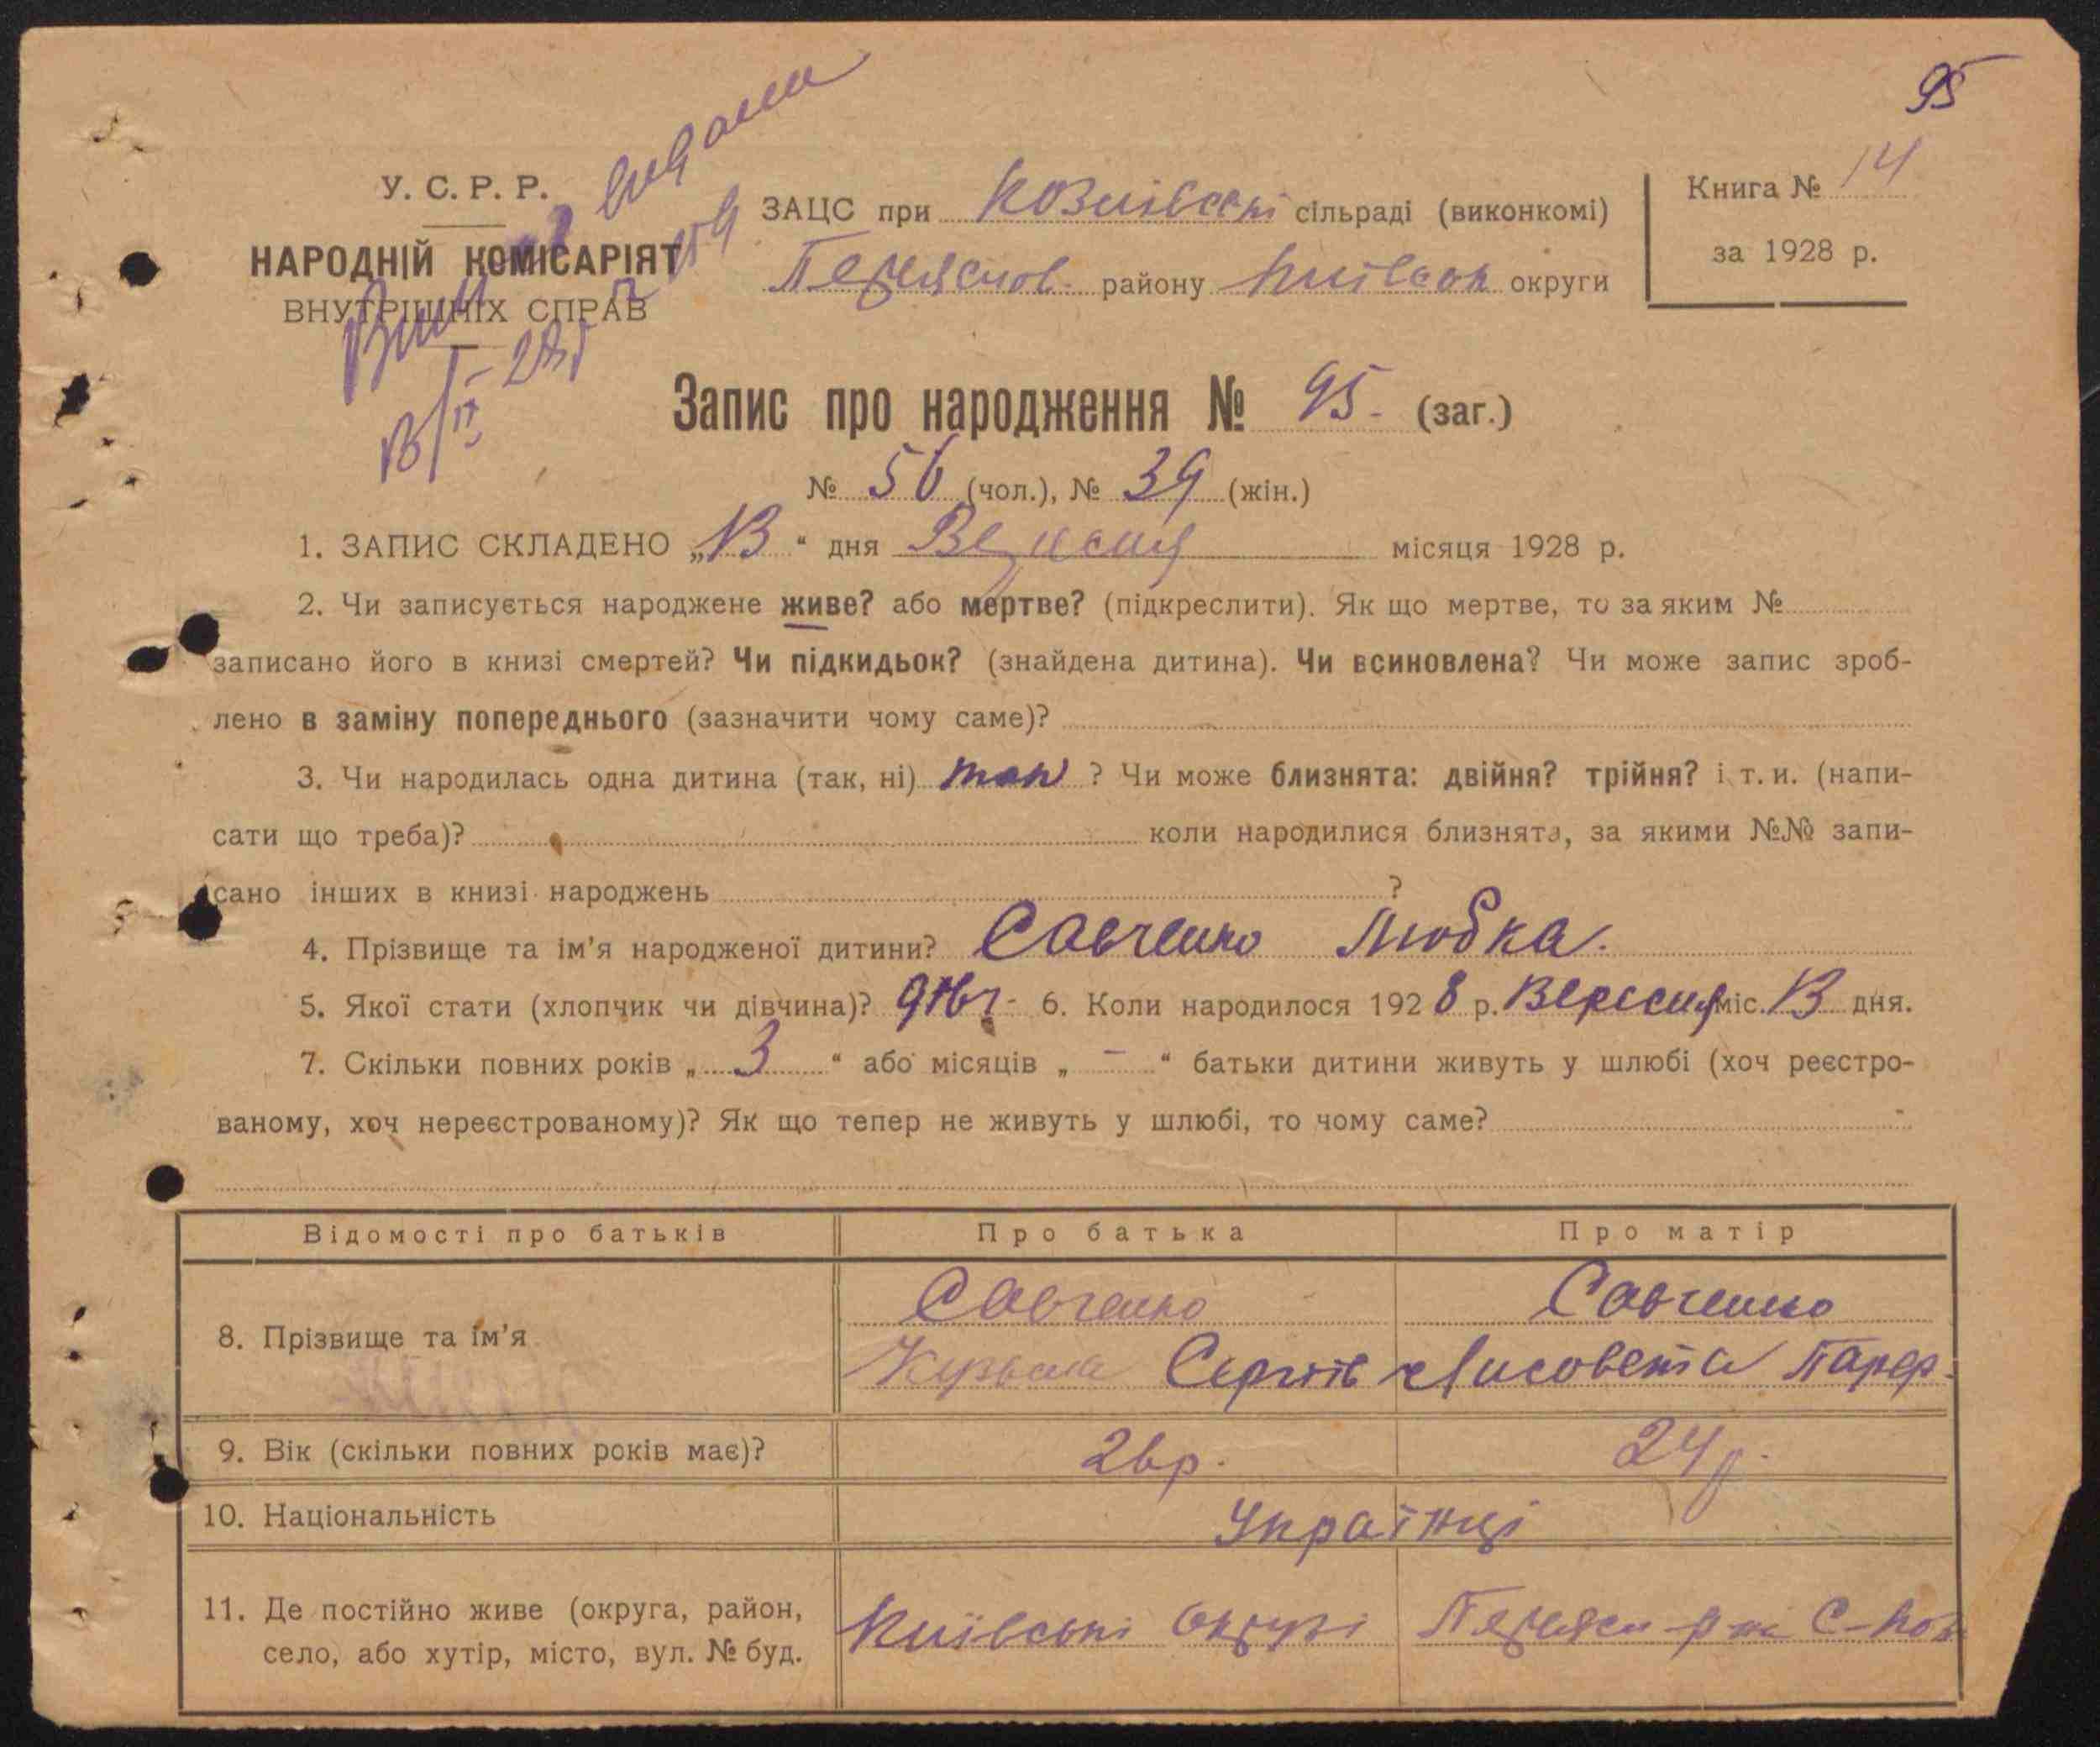 95
У. С. Р. Р.
НАРОДНІЙ КОМІСАРІЯТ
ВНУТРІШНІХ СПРАВ
ЗАЦС при Козлівські сільраді (виконкомі)
Переяслов. району Київськ округи
Книга № 14
за 1928 р.
Запис про народження № 95. (заг.)
№ 56 (чол.), № 39 (жін.)
1. ЗАПИС СКЛАДЕНО „13“ дня Вересня місяця 1928 р.
2. Чи записується народжене живе? або мертве? (підкреслити). Як що мертве, то за яким №
записано його в книзі смертей? Чи підкидьок? (знайдена дитина). Чи всиновлена? Чи може запис зроб-
лено в заміну попереднього (зазначити чому саме)?
3. Чи народилась одна дитина (так, ні) так ? Чи може близнята: двійня? трійня? і т. и. (напи-
сати що треба)? коли народилися близнята, за якими №№ запи-
сано інших в книзі народжень ?
4. Прізвище та ім’я народженої дитини? Савченко Любка.
5. Якої стати (хлопчик чи дівчина)? дівч- 6. Коли народилося 1928 р. Вересня міс. 13 дня.
7. Скільки повних років „3“ або місяців „ – “ батьки дитини живуть у шлюбі (хоч реєстро-
ваному, хоч нереєстрованому)? Як що тепер не живуть у шлюбі, то чому саме?
Відомості про батьків Про батька Про матір
8. Прізвище та ім’я Савченко Савченко
Кузьма Сергіїв Лисовета Парф.
9. Вік (скільки повних років має)? 26р. 24р.
10. Національність Українці
11. Де постійно живе (округа, район,
село, або хутір, місто, вул. № буд.
Київські округі Переясл р-ні